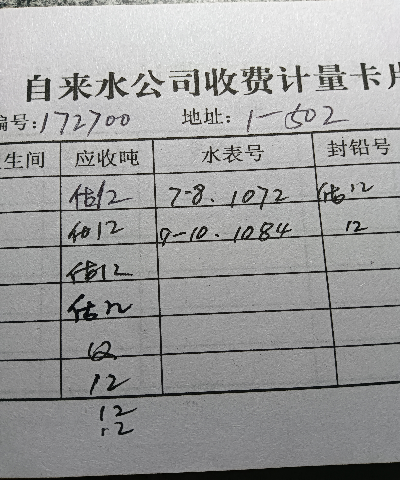 自来水公司收费计量卡片
编号:172700 地址: 1-502
生间 应收吨 水表号 封铅号
估12 7-8. 1072 估12
估12 9-10. 1084 12
估12
估12
12
12
12
12